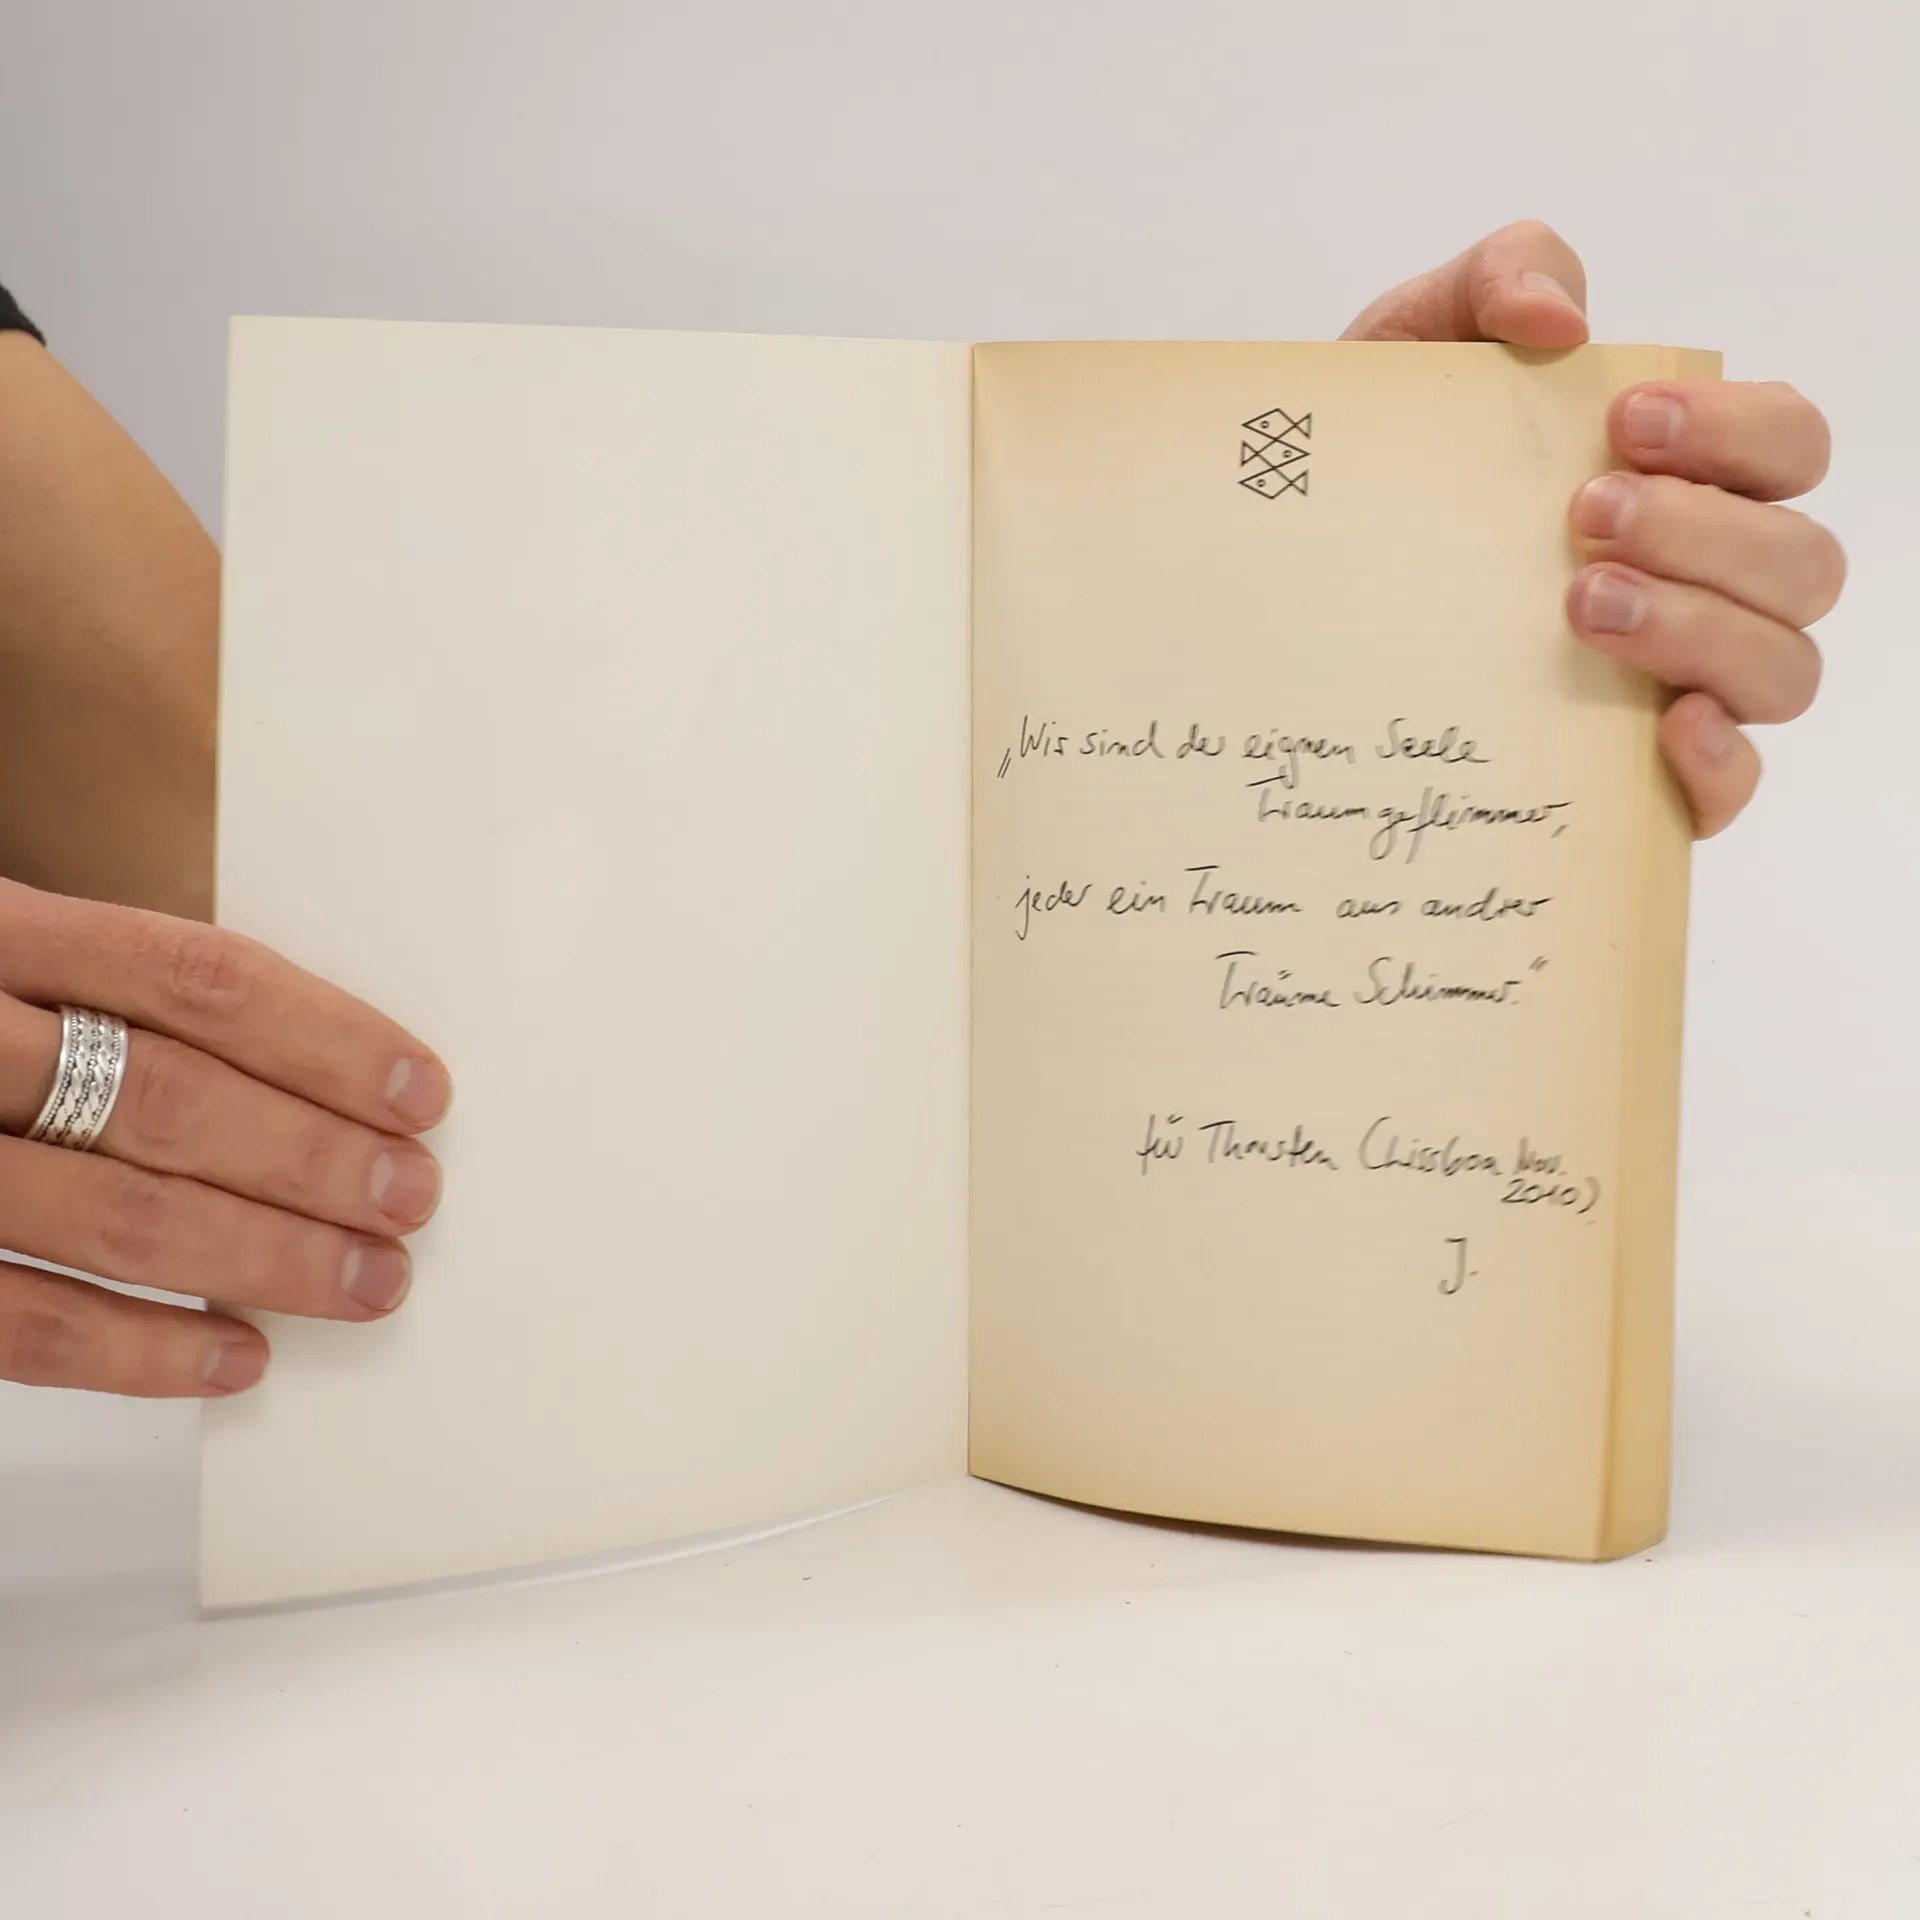 „Wir sind der eignen Seele
Traumgeflimmer,
jeder ein Traum aus andrer
Träume Schimmer."
für Thorsten (Lissboa Nov.
2010)
J.